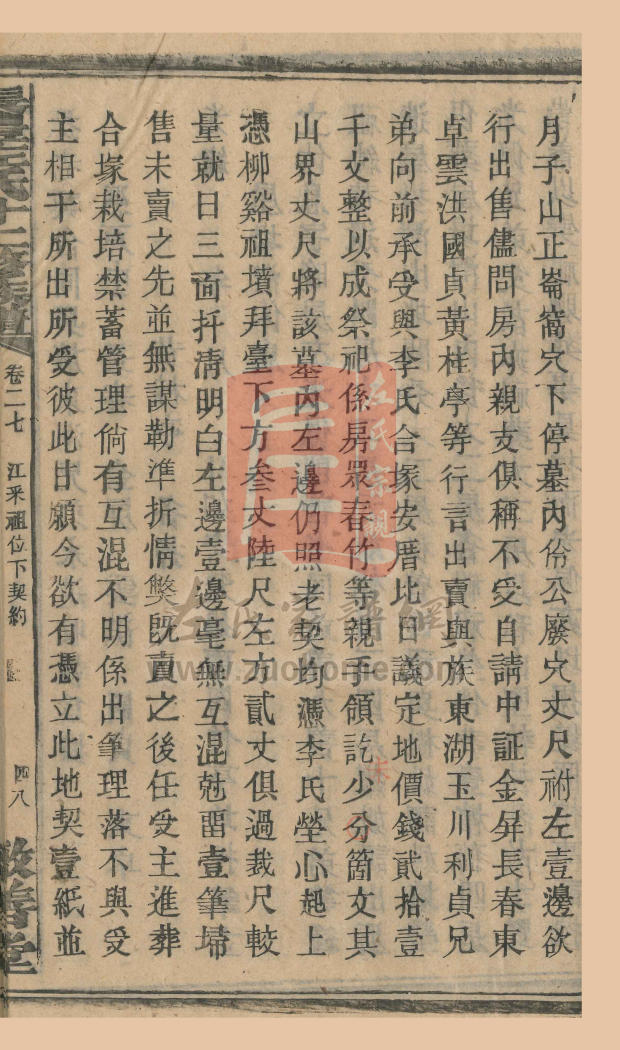 月子山正崙窩穴下停墓內佮公廢穴丈尺祔左壹邊欲
行出售儘問房內親支俱稱不受自請中証金屏長春東
卓雲洪國貞黃桂亭等行言出賣與族東湖玉川利貞兄
弟向前承受與李氏合塚安厝比日議定地價錢貳拾壹
千文整以成祭祀係房眾春竹等親手領訖少分箇文其
山界丈尺將該墓內左邊仍照老契均慿李氏塋心起上
憑柳谿祖墳拜臺下方叁丈陸尺左方貳丈俱過裁尺較
量就日三面扦清明白左邊壹邊毫無互混尅畱壹筆埽
售未賣之先並無謀勒準折情獘既賣之後任受主進葬
合塚栽培禁蓄管理倘有互混不明係出筆理落不與受
主相干所出所受彼此甘願今欲有憑立此地契壹紙並
氏十二修族譜
卷二七
江釆祖位下契約
四八
敬善堂
左氏宗親
左氏家譜網
www.zuohome.com